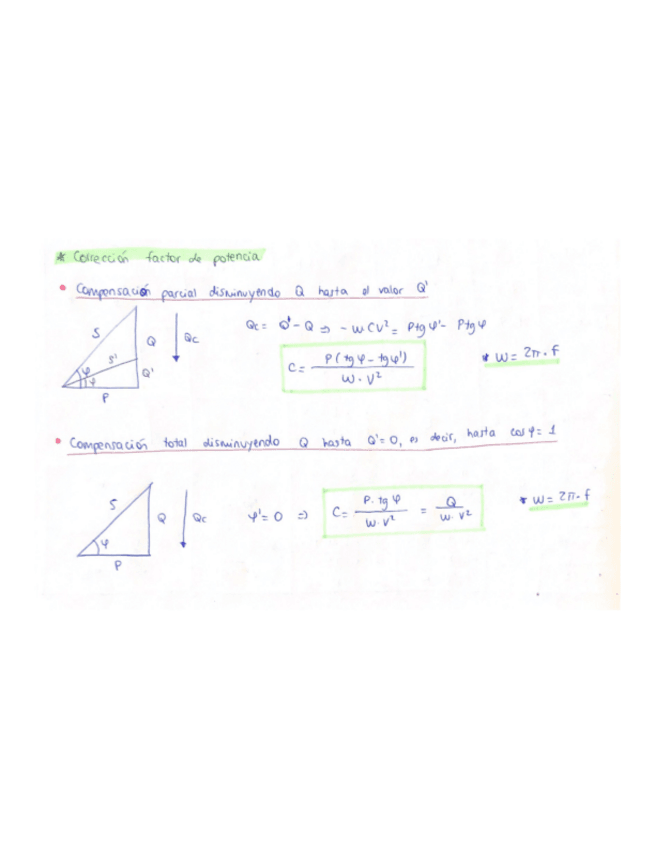 * Corrección factor de potencia
• Compensación parcial disminuyendo Q hasta el valor Q'
S Q Qc S' Q' φ φ' P
Qc = Q' - Q ⇒ - W C V² = P tg φ' - P tg φ
C = P ( tg φ - tg φ') / W · V²
* W = 2π · f
• Compensación total disminuyendo Q hasta Q' = 0, es decir, hasta cos φ = 1
S Q Qc φ P
φ' = 0 ⇒ C = P · tg φ / W · V² = Q / W · V²
* W = 2π · f